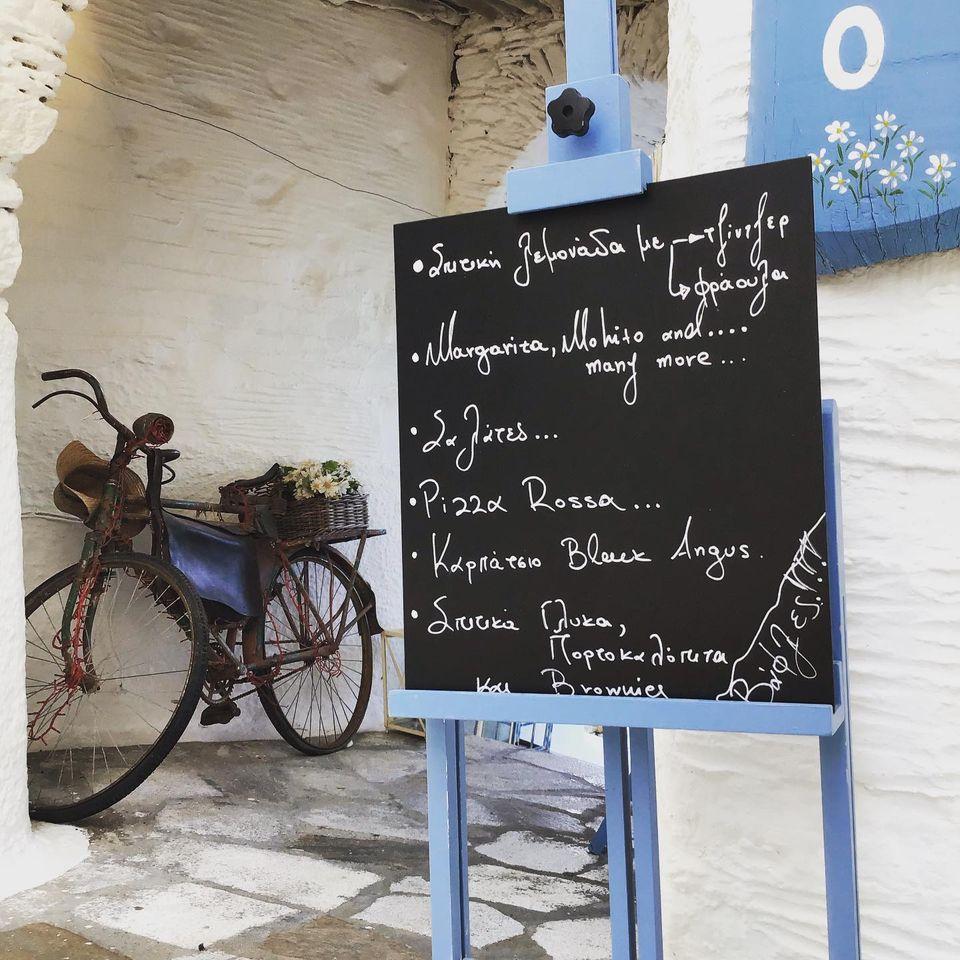 Ο
• Σπιτική λεμονάδα με → τζίντζερ
→ φράουλα
• Margarita, Mohito and....
many more...
• Σαλάτες...
• Pizza Rossa...
• Καρπάτσιο Black Angus.
• Σπιτικά Γλυκα,
Πορτοκαλόπιτα
και Brownies
Βάφλες!!!